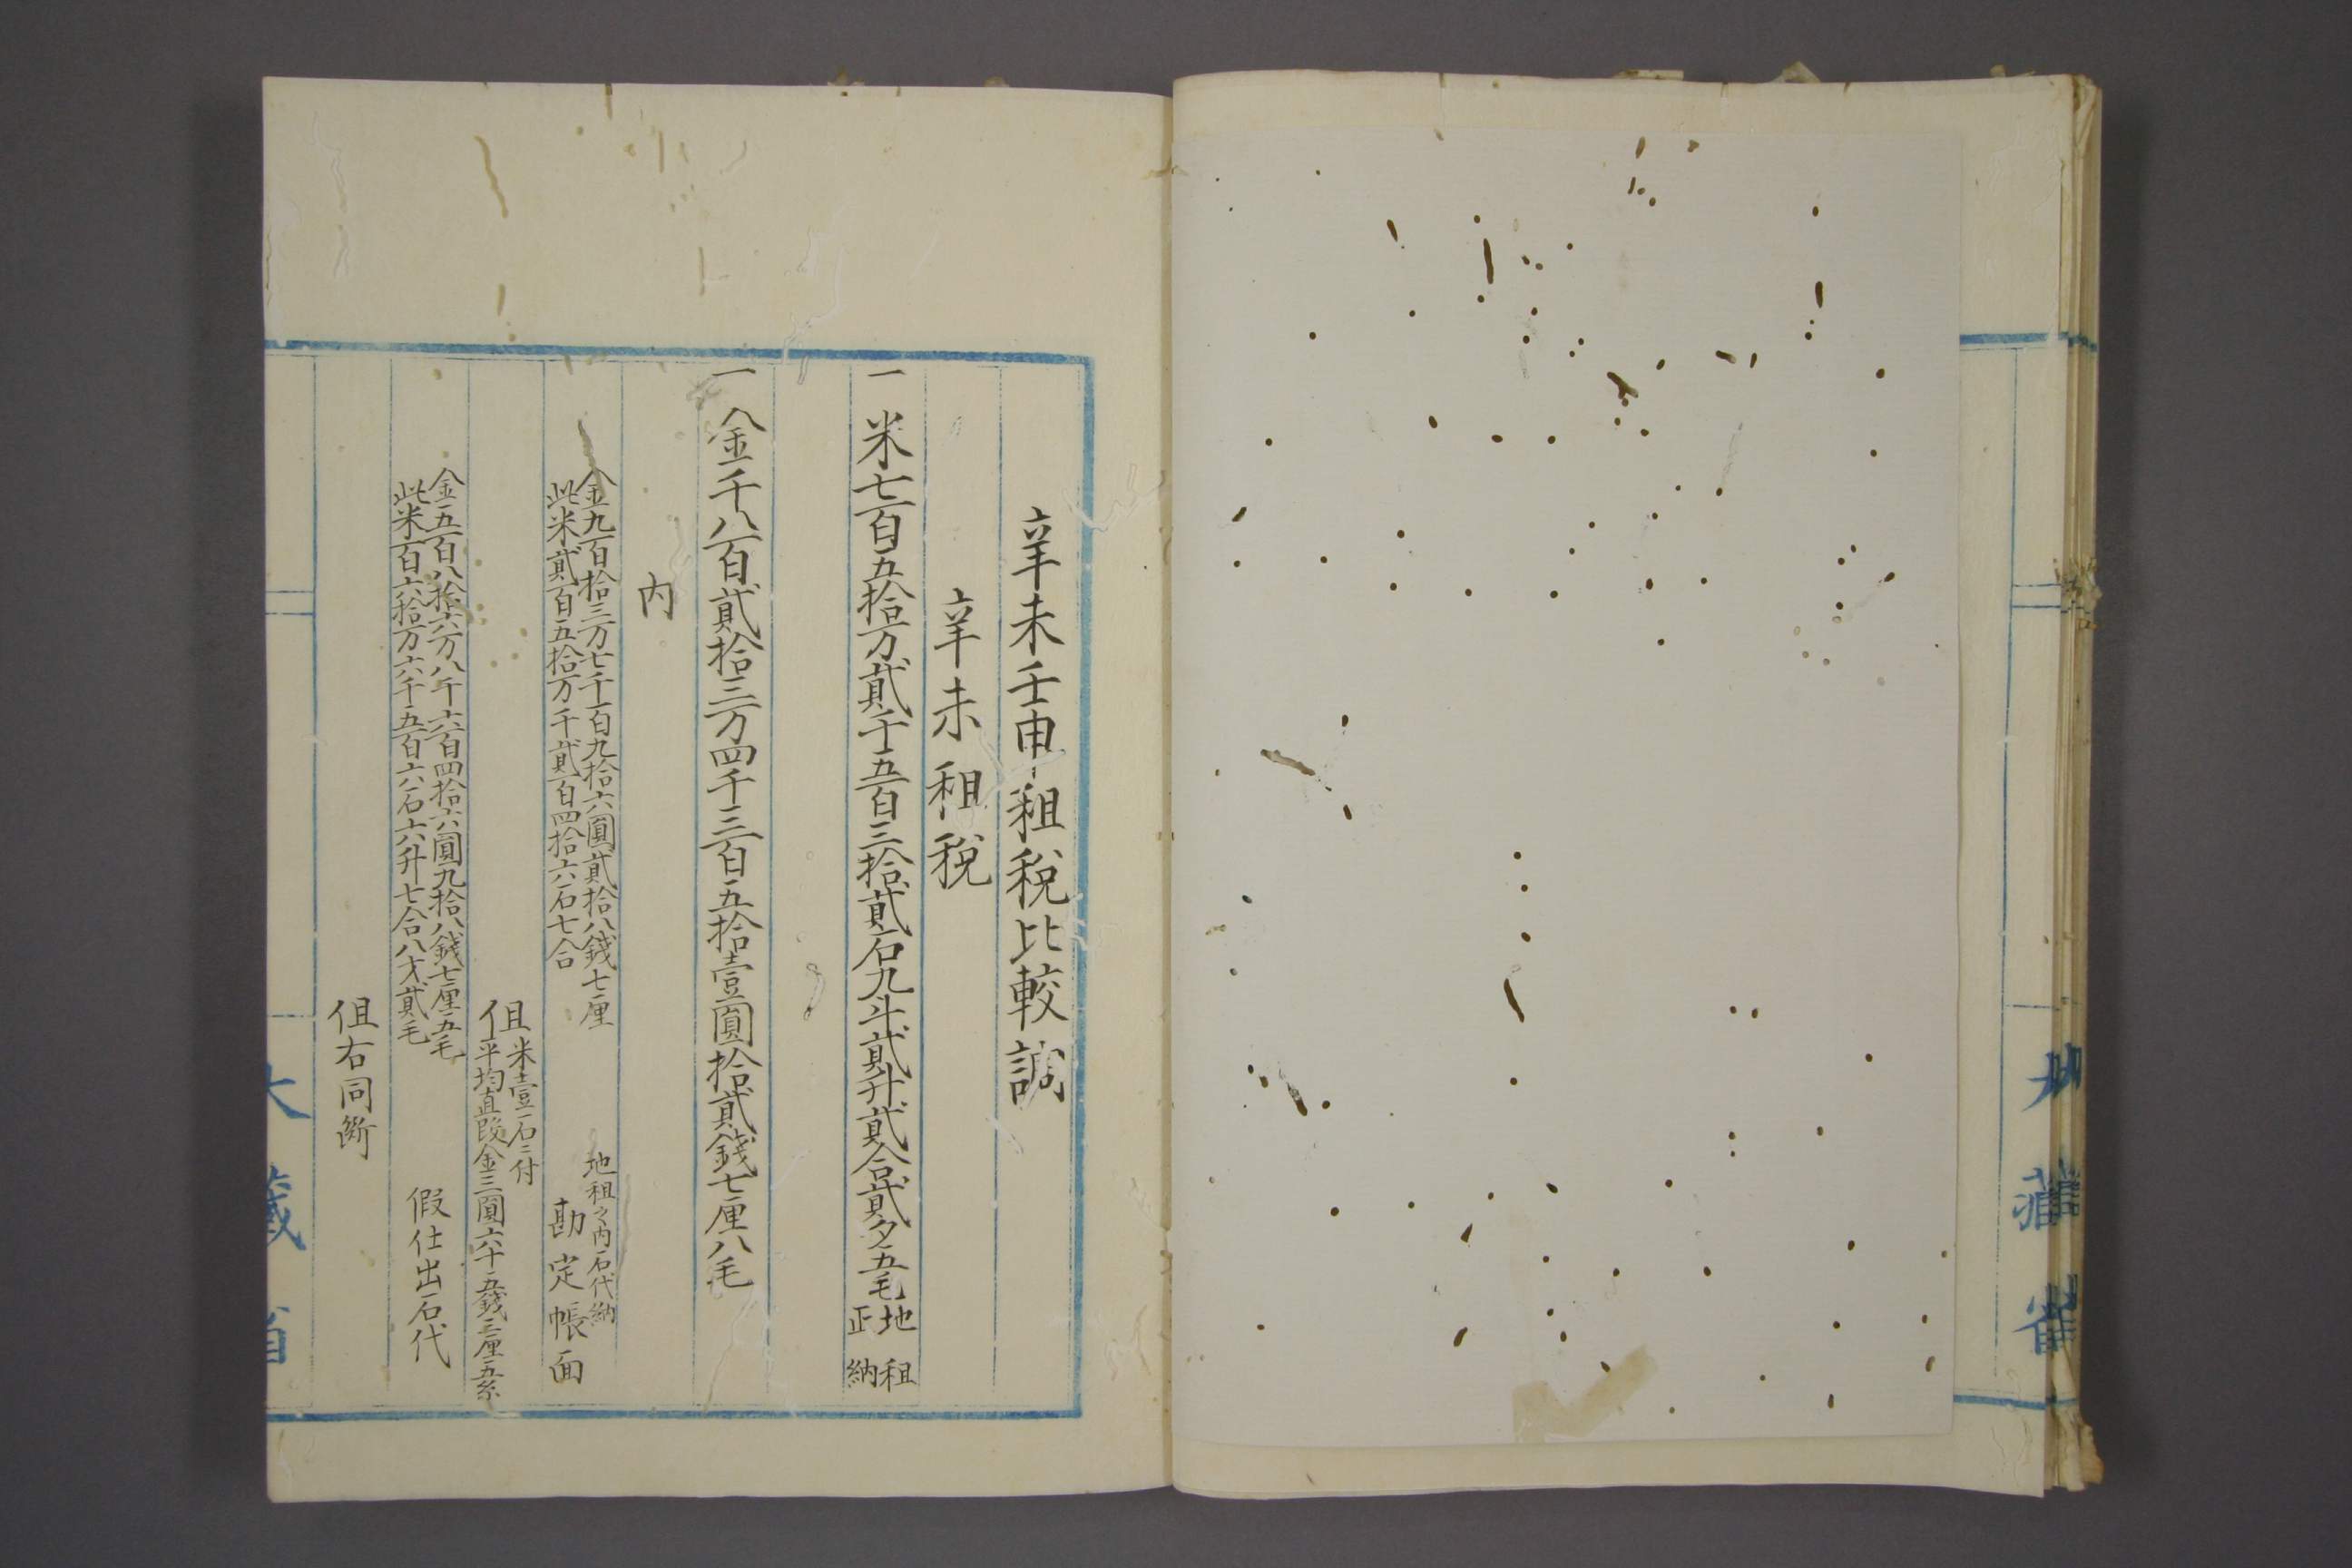 辛未壬申租税比較調
辛未租税
一 米七百五拾万貳千五百三拾貳石九斗貳升貳合貳夕五毛 地租
正納
一 金千八百貳拾三万四千三百五拾壹圓拾貳錢七厘八毛
内
金九百拾三万七千百九拾六圓貳拾八錢七厘 地租之内石代納
此米貳百五拾万千貳百四拾六石七合 勘定帳面
但 米壹石ニ付
平均直段金三圓六十五錢三厘五糸
金五百八拾六万八千六百四拾六圓九拾八錢七厘五毛
此米百六拾万六千五百六石六升七合八才貳毛 假仕出石代
但右同断
大藏省